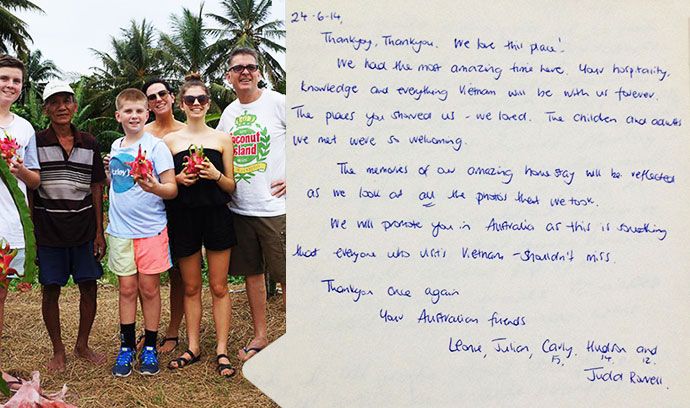 24-6-14,
Thankyou, Thankyou. We love this place!
We had the most amazing time here. Your hospitality,
knowledge and everything Vietnam will be with us forever.
The places you showed us - we loved. The children and adults
we met were so welcoming.
The memories of our amazing homestay will be reflected
as we look at all the photos that we took.
We will promote you in Australia as this is something
that everyone who visits Vietnam - shouldn't miss.
Thankyou once again
Your Australian friends
Leonie, Julian, Carly, Hudson and
15, 14, 12.
Judd
Coconut
Island